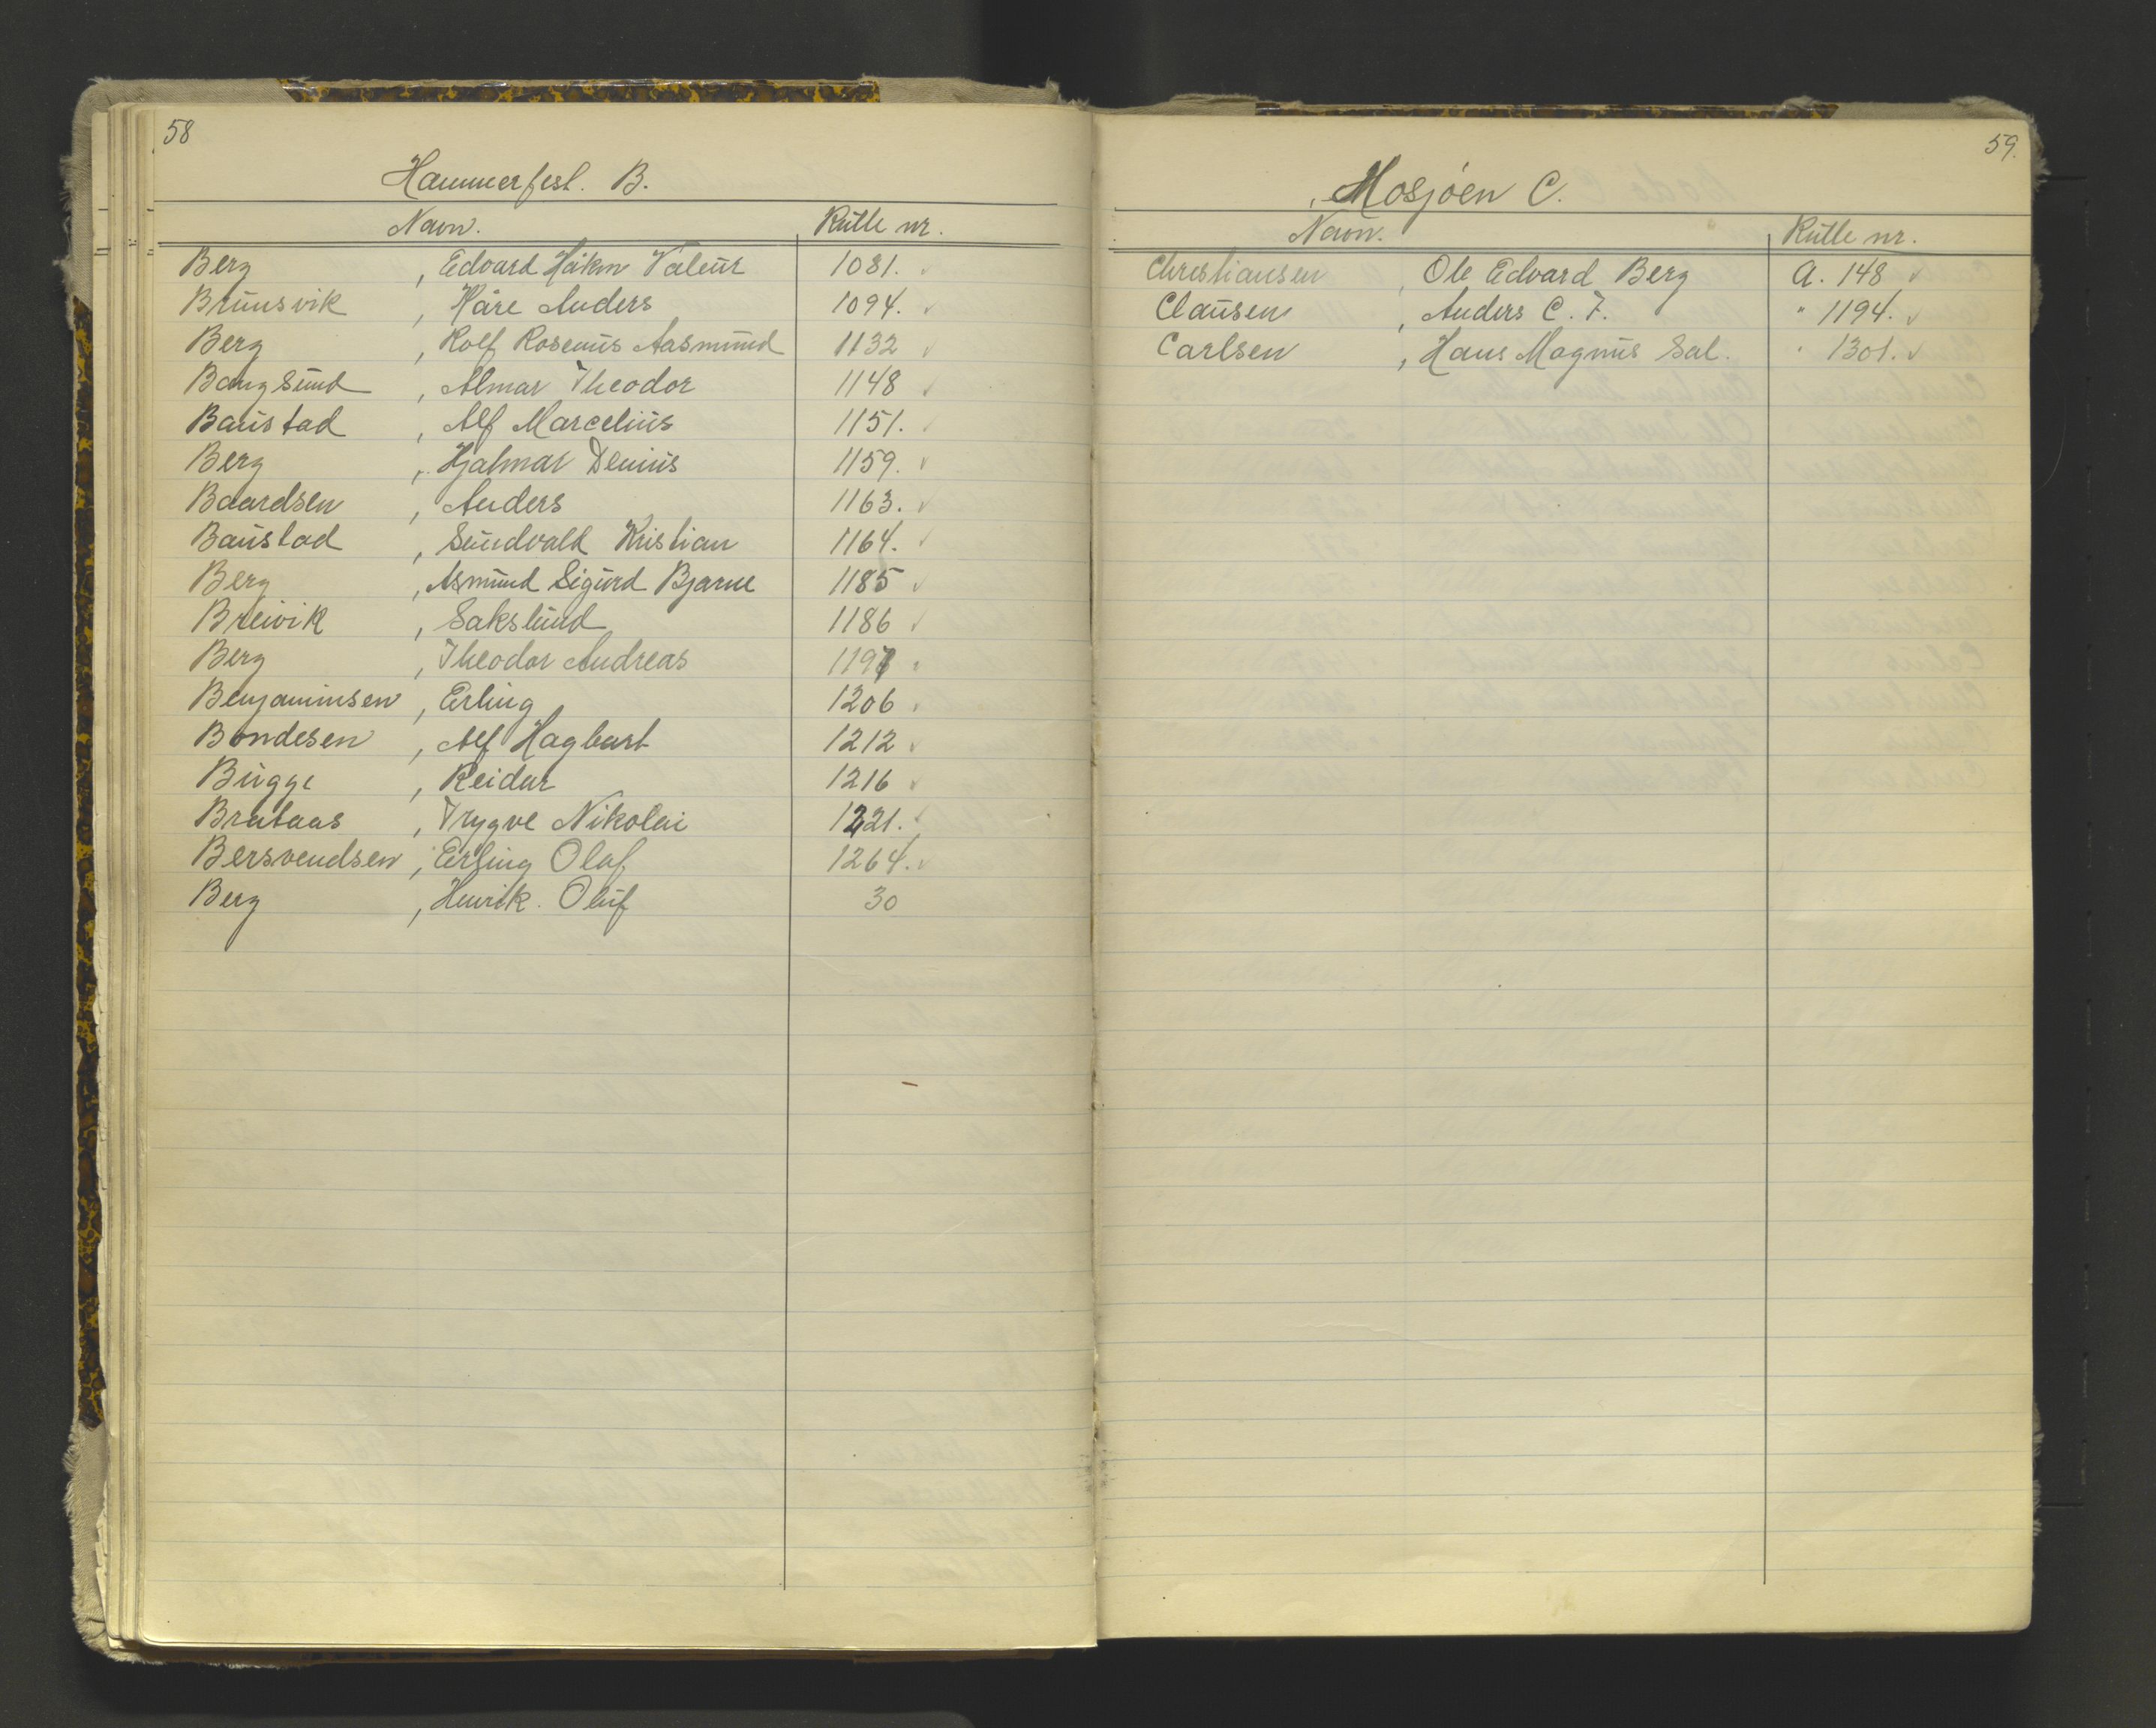 58
Hammerfest. B.
Navn. Rulle nr.
Berg, Edvard Håkon Valeur 1081. ✓
Brunsvik, Kåre Anders 1094. ✓
Berg, Rolf Rosenius Aasmund 1132 ✓
Bangsund, Almar Theodor 1148 ✓
Baustad, Alf Marcelius 1151. ✓
Berg, Hjalmar Denius 1159. ✓
Baardsen, Anders 1163. ✓
Baustad, Sundvald Kristian 1164. ✓
Berg, Asmund Sigurd Bjarne 1185 ✓
Breivik, Sakslund 1186 ✓
Berg, Theodor Andreas
Benjaminsen, Erling 1206
Bondesen, Alf Hagbart 1212 ✓
Bugge, Reidar 1216 ✓
Brataas, Trygve Nikolai 1221. ✓
Bersvendsen, Erling Olaf 1264. ✓
Berg, Henrik. Oluf 30
59.
Mosjöen C.
Navn. Rulle nr.
Christiansen, Ole Edvard Berg A. 148 ✓
Clausen, Anders C. F. " 1194. ✓
Carlsen, Hans Magnus Sal. " 1301. ✓